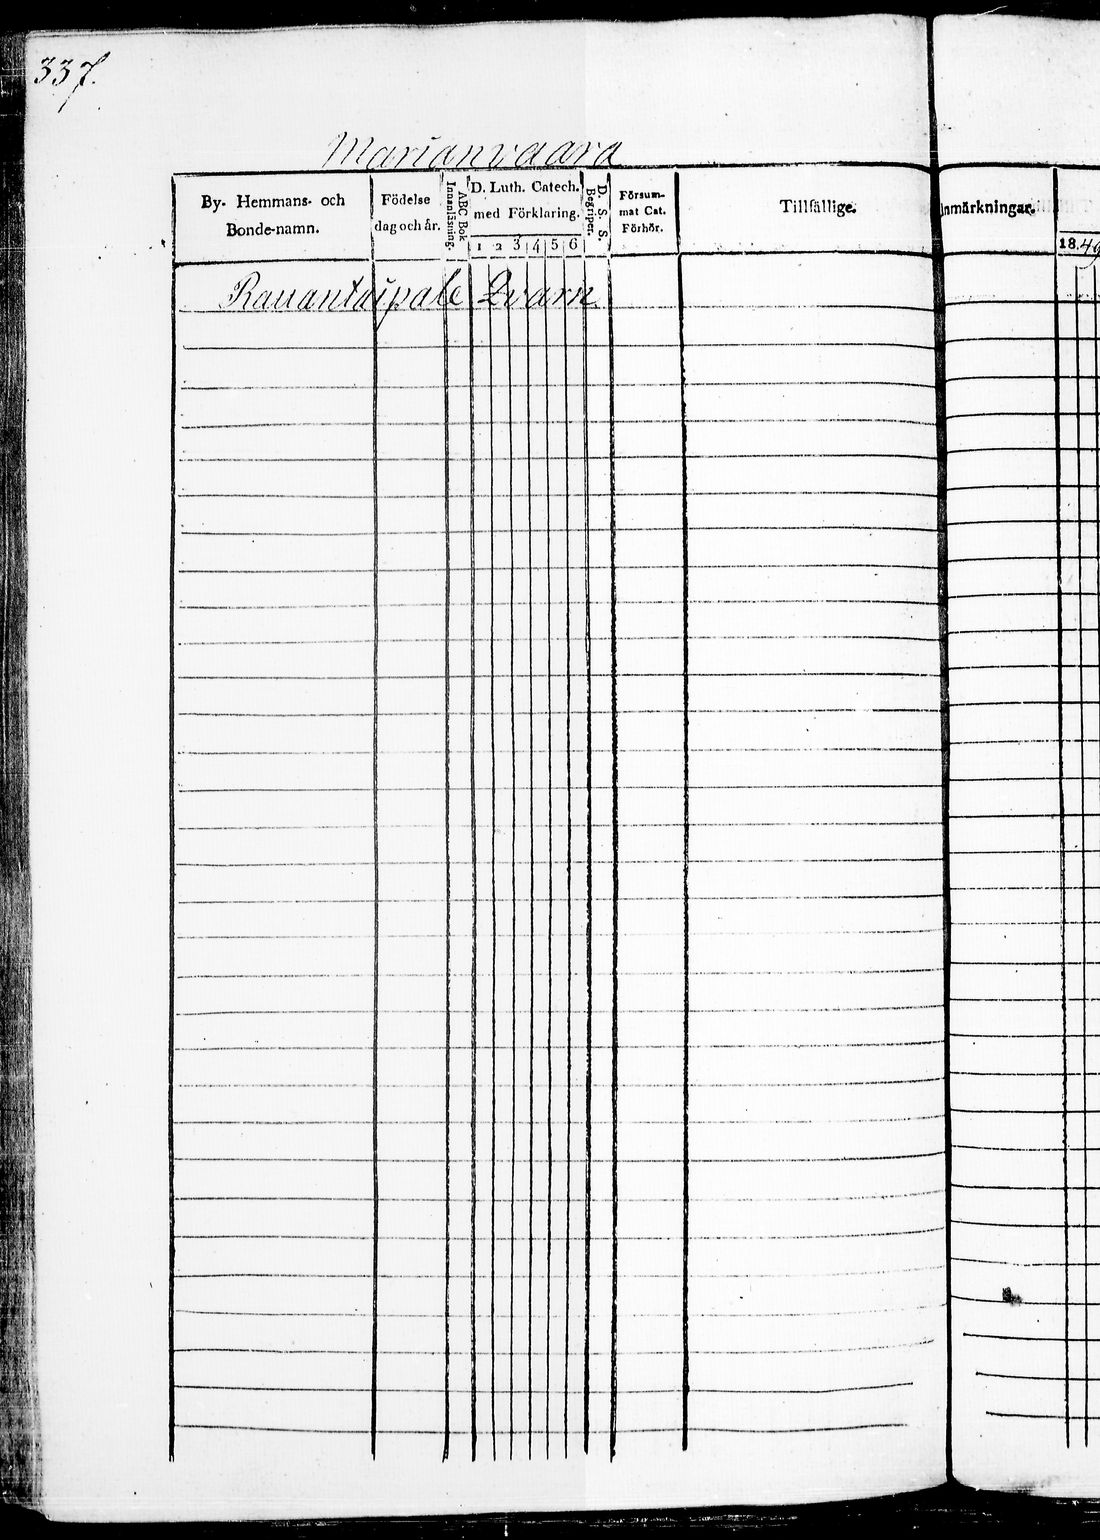 337.
Marianvaara
By- Hemmans- och
Bonde-namn.
Födelse
dag och år.
ABC Bok
Innanläsning.
D. Luth. Catech.
med Förklaring.
1 2 3 4 5 6
D. S. S.
Begriper.
Försum-
mat Cat.
Förhör.
Tillfällige.
Anmärkningar.
1849
Rauantaipale Qvarn